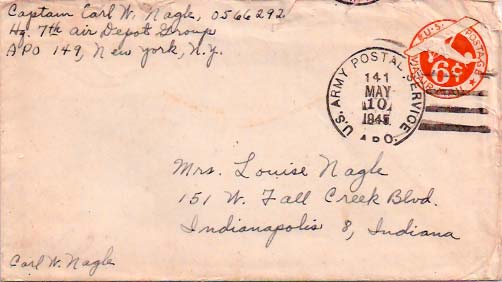 Captain Carl W. Nagle, 0566292
Hq. 7th Air Depot Group
APO 149, New York, N.Y.
U.S. POSTAGE
6¢
VIA AIR MAIL
U.S. ARMY POSTAL SERVICE
141
MAY
10
1945
A.P.O.
Mrs. Louise Nagle
151 W. Fall Creek Blvd.
Indianapolis 8, Indiana
Carl W. Nagle